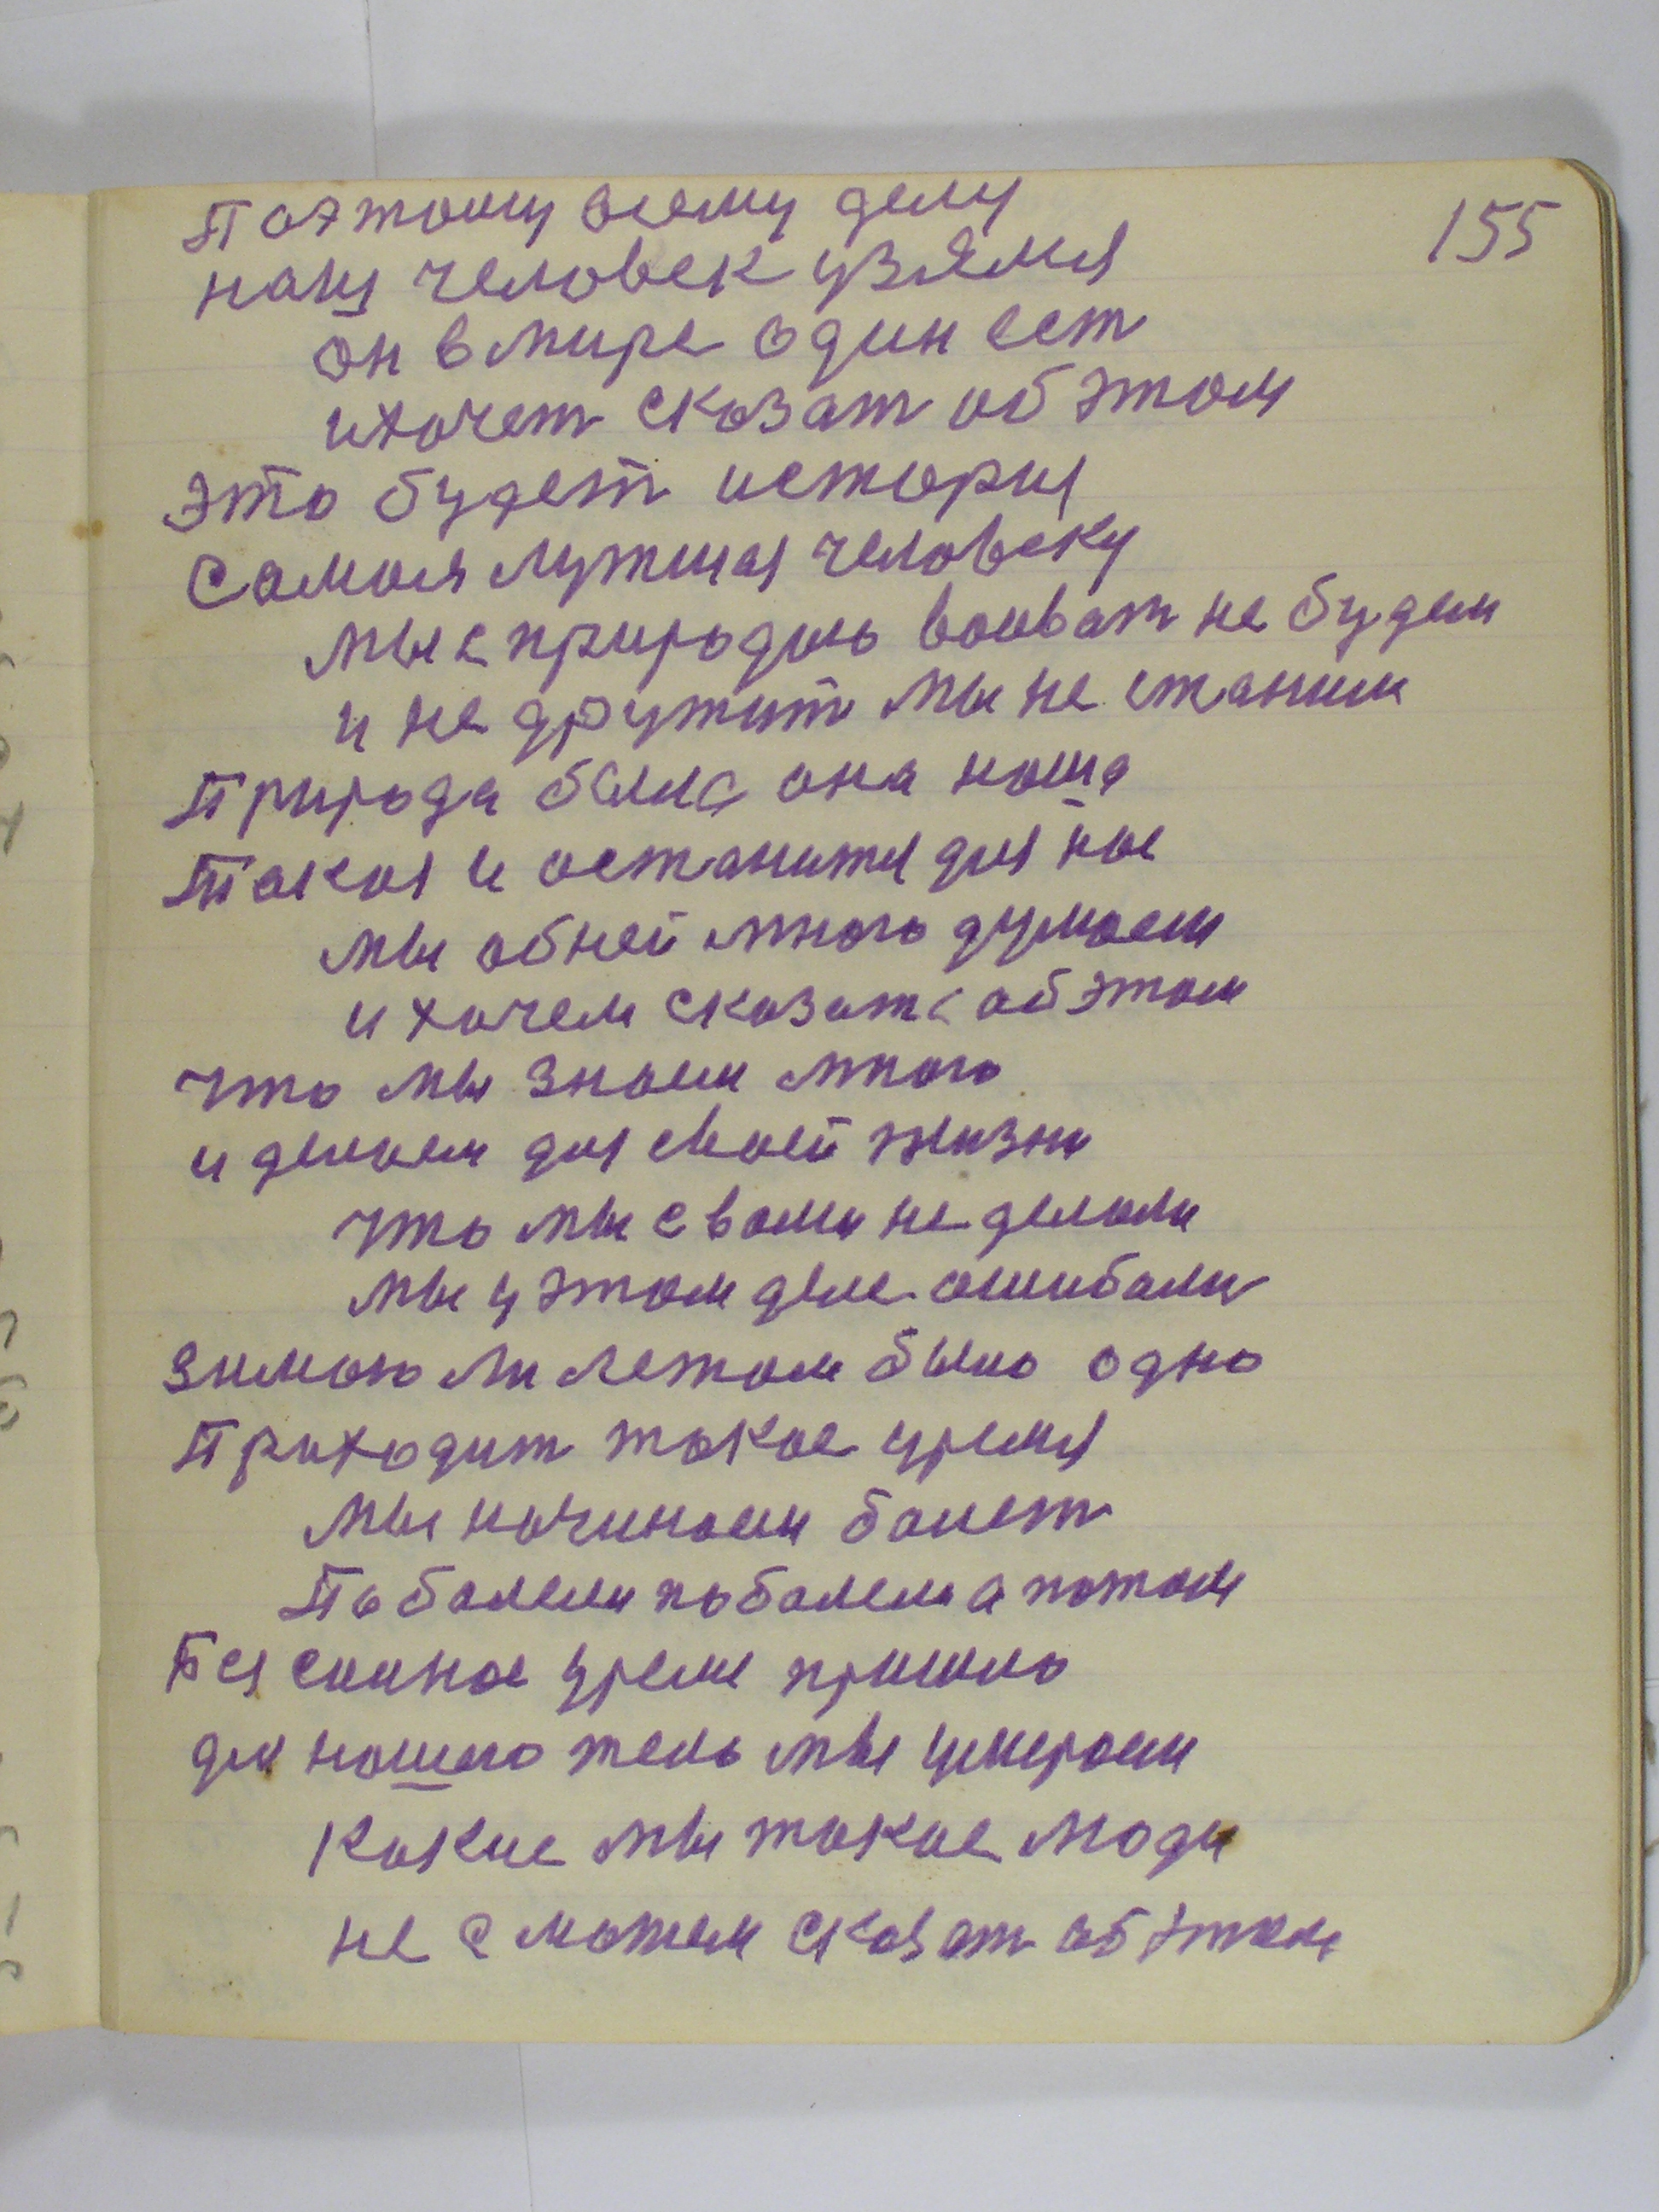 155
Поэтому всему делу
наш человек узялся
он в мире один ест
и хочет сказат об этом
Это будет история
самоя лутшая человеку
мы с природою воюват не будем
и не дружит мы не станим
Природа была она наша
Такая и останится для нас
мы об ней много думаем
и хочем сказать об этом
что мы знаем много
и делаем для своей жизни
что мы с вами не делали
мы у этом деле ошибали
зимою ли летом было одно
Приходит такое уремя
мы начинаем болет
Поболеем поболеем а потом
уреме пришло
для нашего тело мы умераем
какие мы такое люди
не сможем сказат об этом